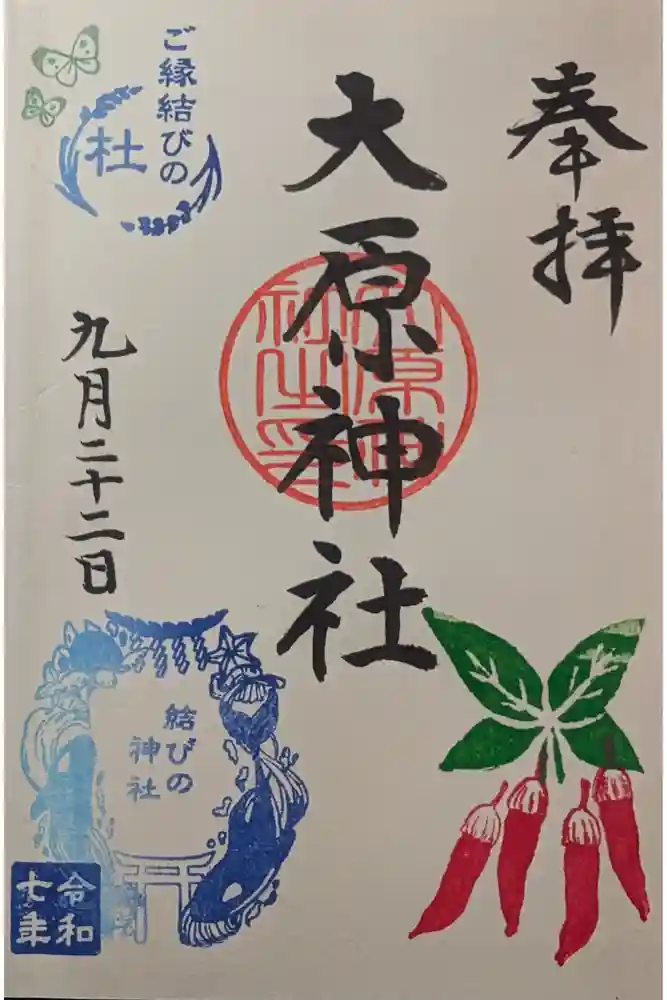 奉拝
大原神社
大原神社之印
ご縁結びの
杜
九月二十二日
結びの
神社
令和
七年